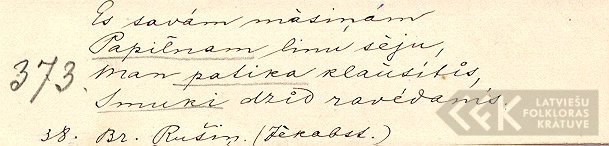 Es savám māsiņám
Papilnam linu sēju,
373. Man patika klausítís,
Smuki dzíd ravēdamís.
38. Br. Rušiņ. (Jēkabst.)
LATVIEŠU
FOLKLORAS
KRĀTUVE